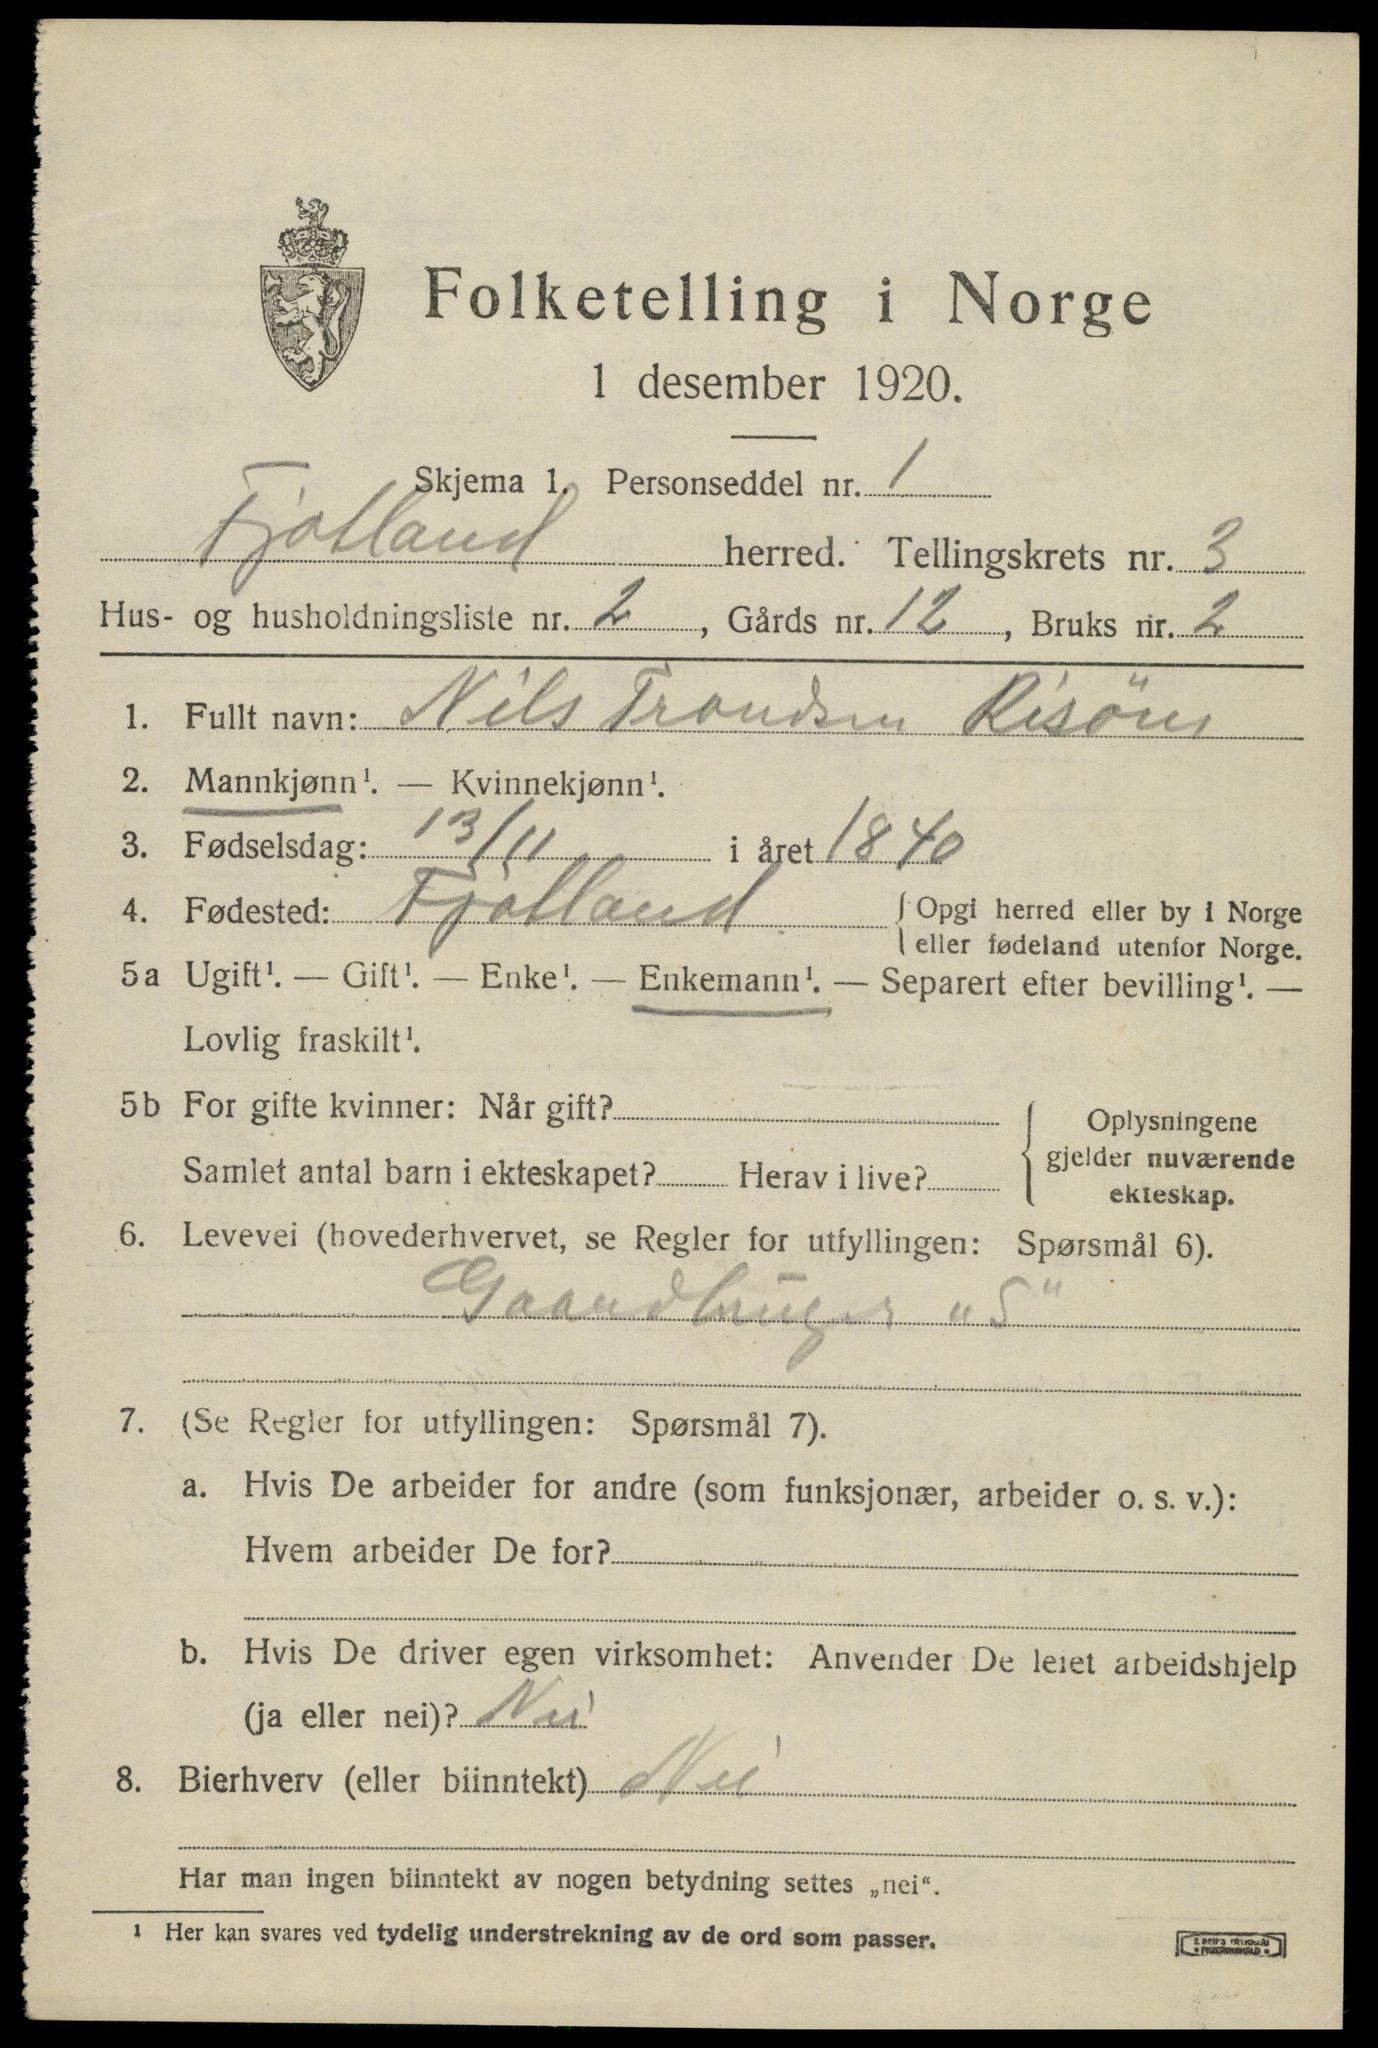 Folketelling i Norge
1 desember 1920.
Skjema 1. Personseddel nr. 1
Fjotland herred. Tellingskrets nr. 3
Hus- og husholdningsliste nr. 2, Gårds nr. 12, Bruks nr. 2
1. Fullt navn: Nils Trondsen
2. Mannkjønn¹. — Kvinnekjønn¹.
3. Fødselsdag: 13/11 i året 1840
4. Fødested: Fjotland { Opgi herred eller by i Norge
eller fødeland utenfor Norge.
5a Ugift¹. — Gift¹. — Enke¹. — Enkemann¹. — Separert efter bevilling¹. —
Lovlig fraskilt¹.
5b For gifte kvinner: Når gift?
Samlet antal barn i ekteskapet? Herav i live?
{ Oplysningene
gjelder nuværende
ekteskap.
6. Levevei (hovederhvervet, se Regler for utfyllingen: Spørsmål 6).
Gaardbruger „S“
7. (Se Regler for utfyllingen: Spørsmål 7).
a. Hvis De arbeider for andre (som funksjonær, arbeider o. s. v.):
Hvem arbeider De for?
b. Hvis De driver egen virksomhet: Anvender De leiet arbeidshjelp
(ja eller nei)? Nei
8. Bierhverv (eller biinntekt) Nei
Har man ingen biinntekt av nogen betydning settes „nei“.
¹ Her kan svares ved tydelig understrekning av de ord som passer.